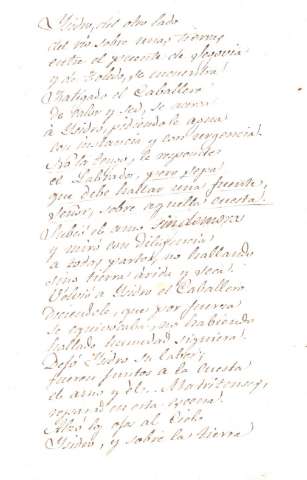 Ysidro, del otro lado
del río sobre unas tierras
entre el puente de Segovia
y de Toledo, se encuentra!
Fatigado el Caballero
de calor y sed, se acerca
á Ysidro, pidiendole agua
con instancia y con urgencia!
No la tengo, le responde
el Labrador, pero sepa
que debe hallar una fuente,
Señor, sobre aquella cuesta!
Subió el amo sin demora
y miró con diligencia
a todas partes, no hallando
sino tierra árida y seca!
Volvió á Ysidro el Caballero
diciendole, que por fuerza
se equivocaba, no habiendo
hallado humedad siquiera!
Dejó Ysidro su labor,
fueron juntos á la cuesta
el amo y él: Madritenses,
reparad en esta escena!
Alzó los ojos al Cielo
Ysidro, y sobre la tierra